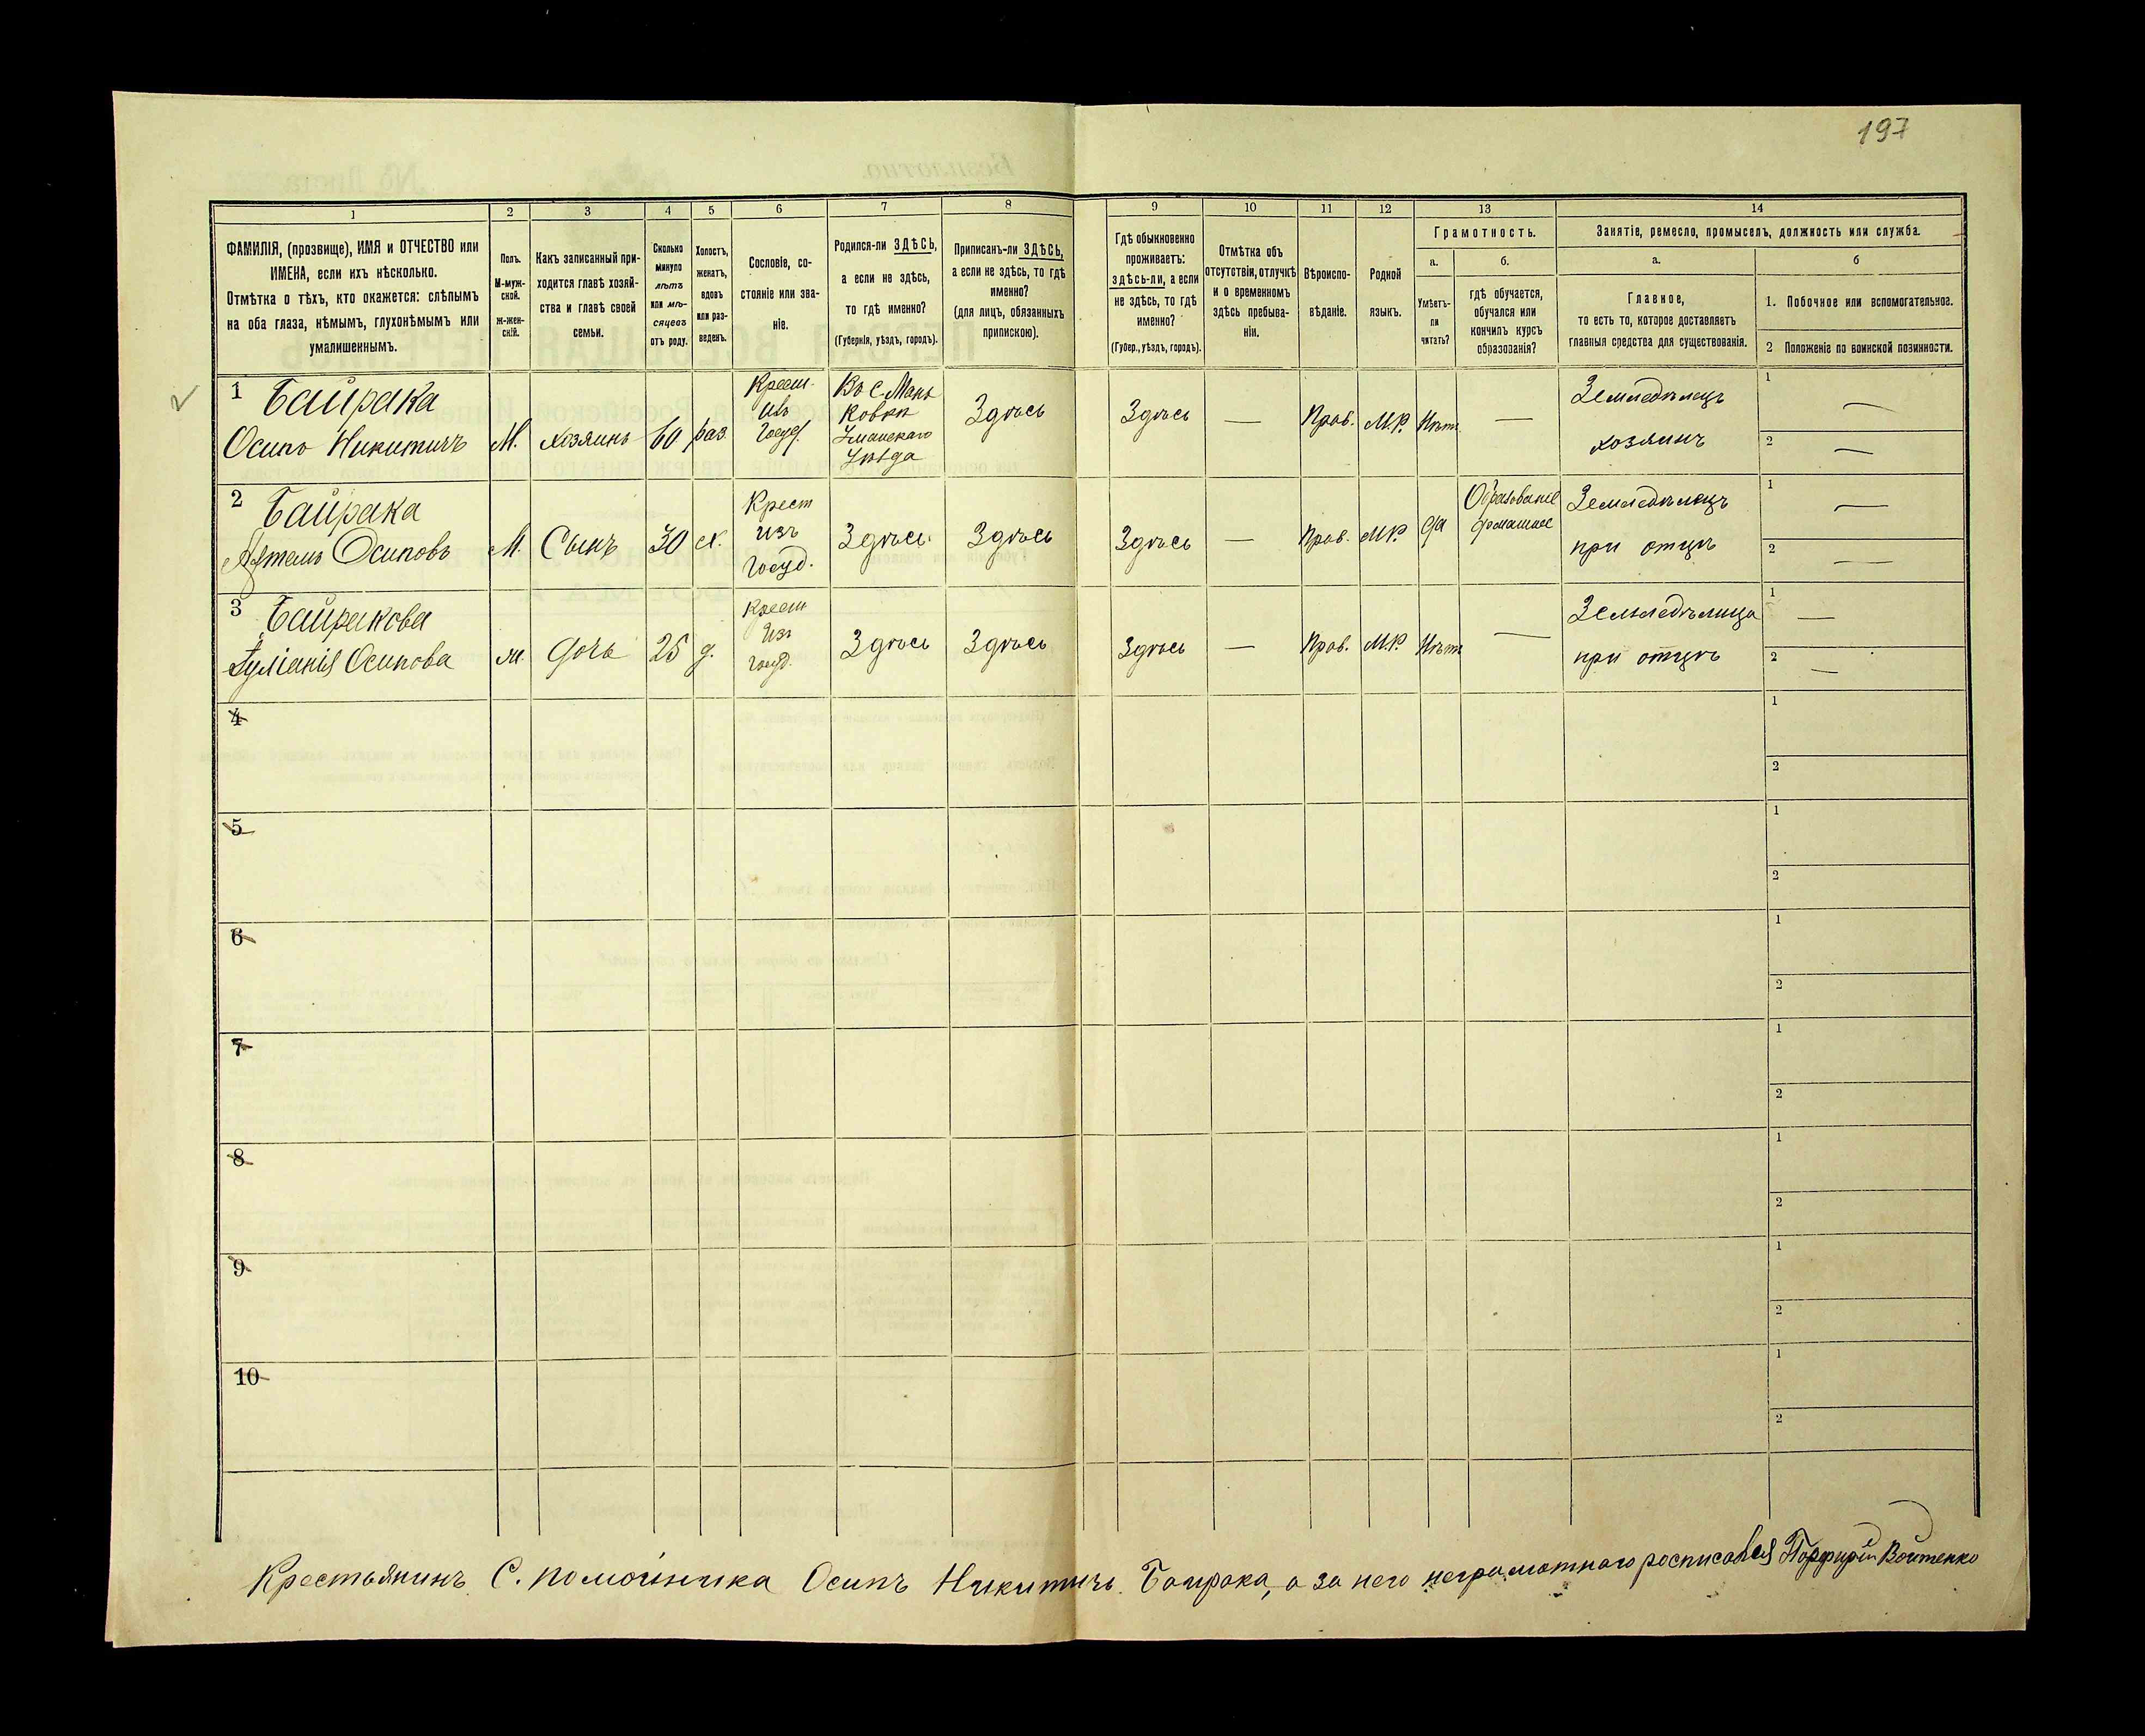 197
1 2 3 4 5 6 7 8 9 10 11 12 13 14
ФАМИЛІЯ, (прозвище), ИМЯ и ОТЧЕСТВО или
ИМЕНА, если ихъ нѣсколько.
Отмѣтка о тѣхъ, кто окажется: слѣпымъ
на оба глаза, нѣмымъ, глухонѣмымъ или
умалишеннымъ.
Полъ.
М-муж-
ской.
ж-жен-
скій.
Какъ записанный при-
ходится главѣ хозяй-
ства и главѣ своей
семьи.
Сколько
минуло
лѣтъ
или мѣ-
сяцевъ
отъ роду.
Холостъ,
женатъ,
вдовъ
или раз-
веденъ.
Сословіе, со-
стояніе или зва-
ніе.
Родился-ли ЗДѢСЬ,
а если не здѣсь,
то гдѣ именно?
(Губернія, уѣздъ, городъ).
Приписанъ-ли ЗДѢСЬ,
а если не здѣсь, то гдѣ
именно?
(для лицъ, обязанныхъ
припискою).
Гдѣ обыкновенно
проживаетъ:
здѣсь-ли, а если
не здѣсь, то гдѣ
именно?
(Губер., уѣздъ, городъ).
Отмѣтка объ
отсутствіи, отлучкѣ
и о временномъ
здѣсь пребыва-
ніи.
Вѣроиспо-
вѣданіе.
Родной
языкъ.
Грамотность.
а.
Умѣетъ-
ли
читать?
б.
гдѣ обучается,
обучался или
кончилъ курсъ
образованія?
Занятіе, ремесло, промыселъ, должность или служба.
а.
Главное,
то есть то, которое доставляетъ
главныя средства для существованія.
б
1. Побочное или вспомогательное.
2 Положеніе по воинской повинности.
1 Байрака
Осипъ Никитичъ
М.
хозяинъ
60
раз.
Крест.
изъ
Госуд.
Въ с Мань
ковки
Уманскаго
Уѣзда
Здѣсь
Здѣсь
—
Прав.
М.Р.
Нѣт
—
Земледѣлецъ
хозяинъ
1 —
2 —
2 Байрака
Артемъ Осиповъ
М.
Сынъ
30
х.
Крест
изъ
Госуд.
Здѣсь.
Здѣсь
Здѣсь
—
Прав.
М.Р.
да
Образованіе
домашнее
Земледѣлецъ
при отцѣ
1 —
2 —
3 Байракова
Іуліанія Осипова
м.
дочь
25
д.
Крест
Изъ
госуд.
Здѣсь
Здѣсь
Здѣсь
—
Прав.
М.Р.
Нѣт
—
Земледѣлица
при отцѣ
1 —
2 —
4
1
2
5
1
2
6
1
2
7
1
2
8
1
2
9
1
2
10
1
2
Крестьянинъ С. помойника Осипъ Никитичъ Байрака, а за него неграмотнаго росписался Порфирій Войтенко